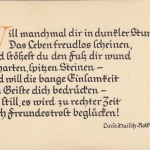 Will manchmal dir in dunkler Stun
Das Leben freudlos scheinen,
nd stößest du den Fuß dir wund
harten, spitzen Steinen –
nd will die bange Einsamkeit
Geiste dich bedrücken –
still, es wird zu rechter Zeit
h Freundestrost beglücken!